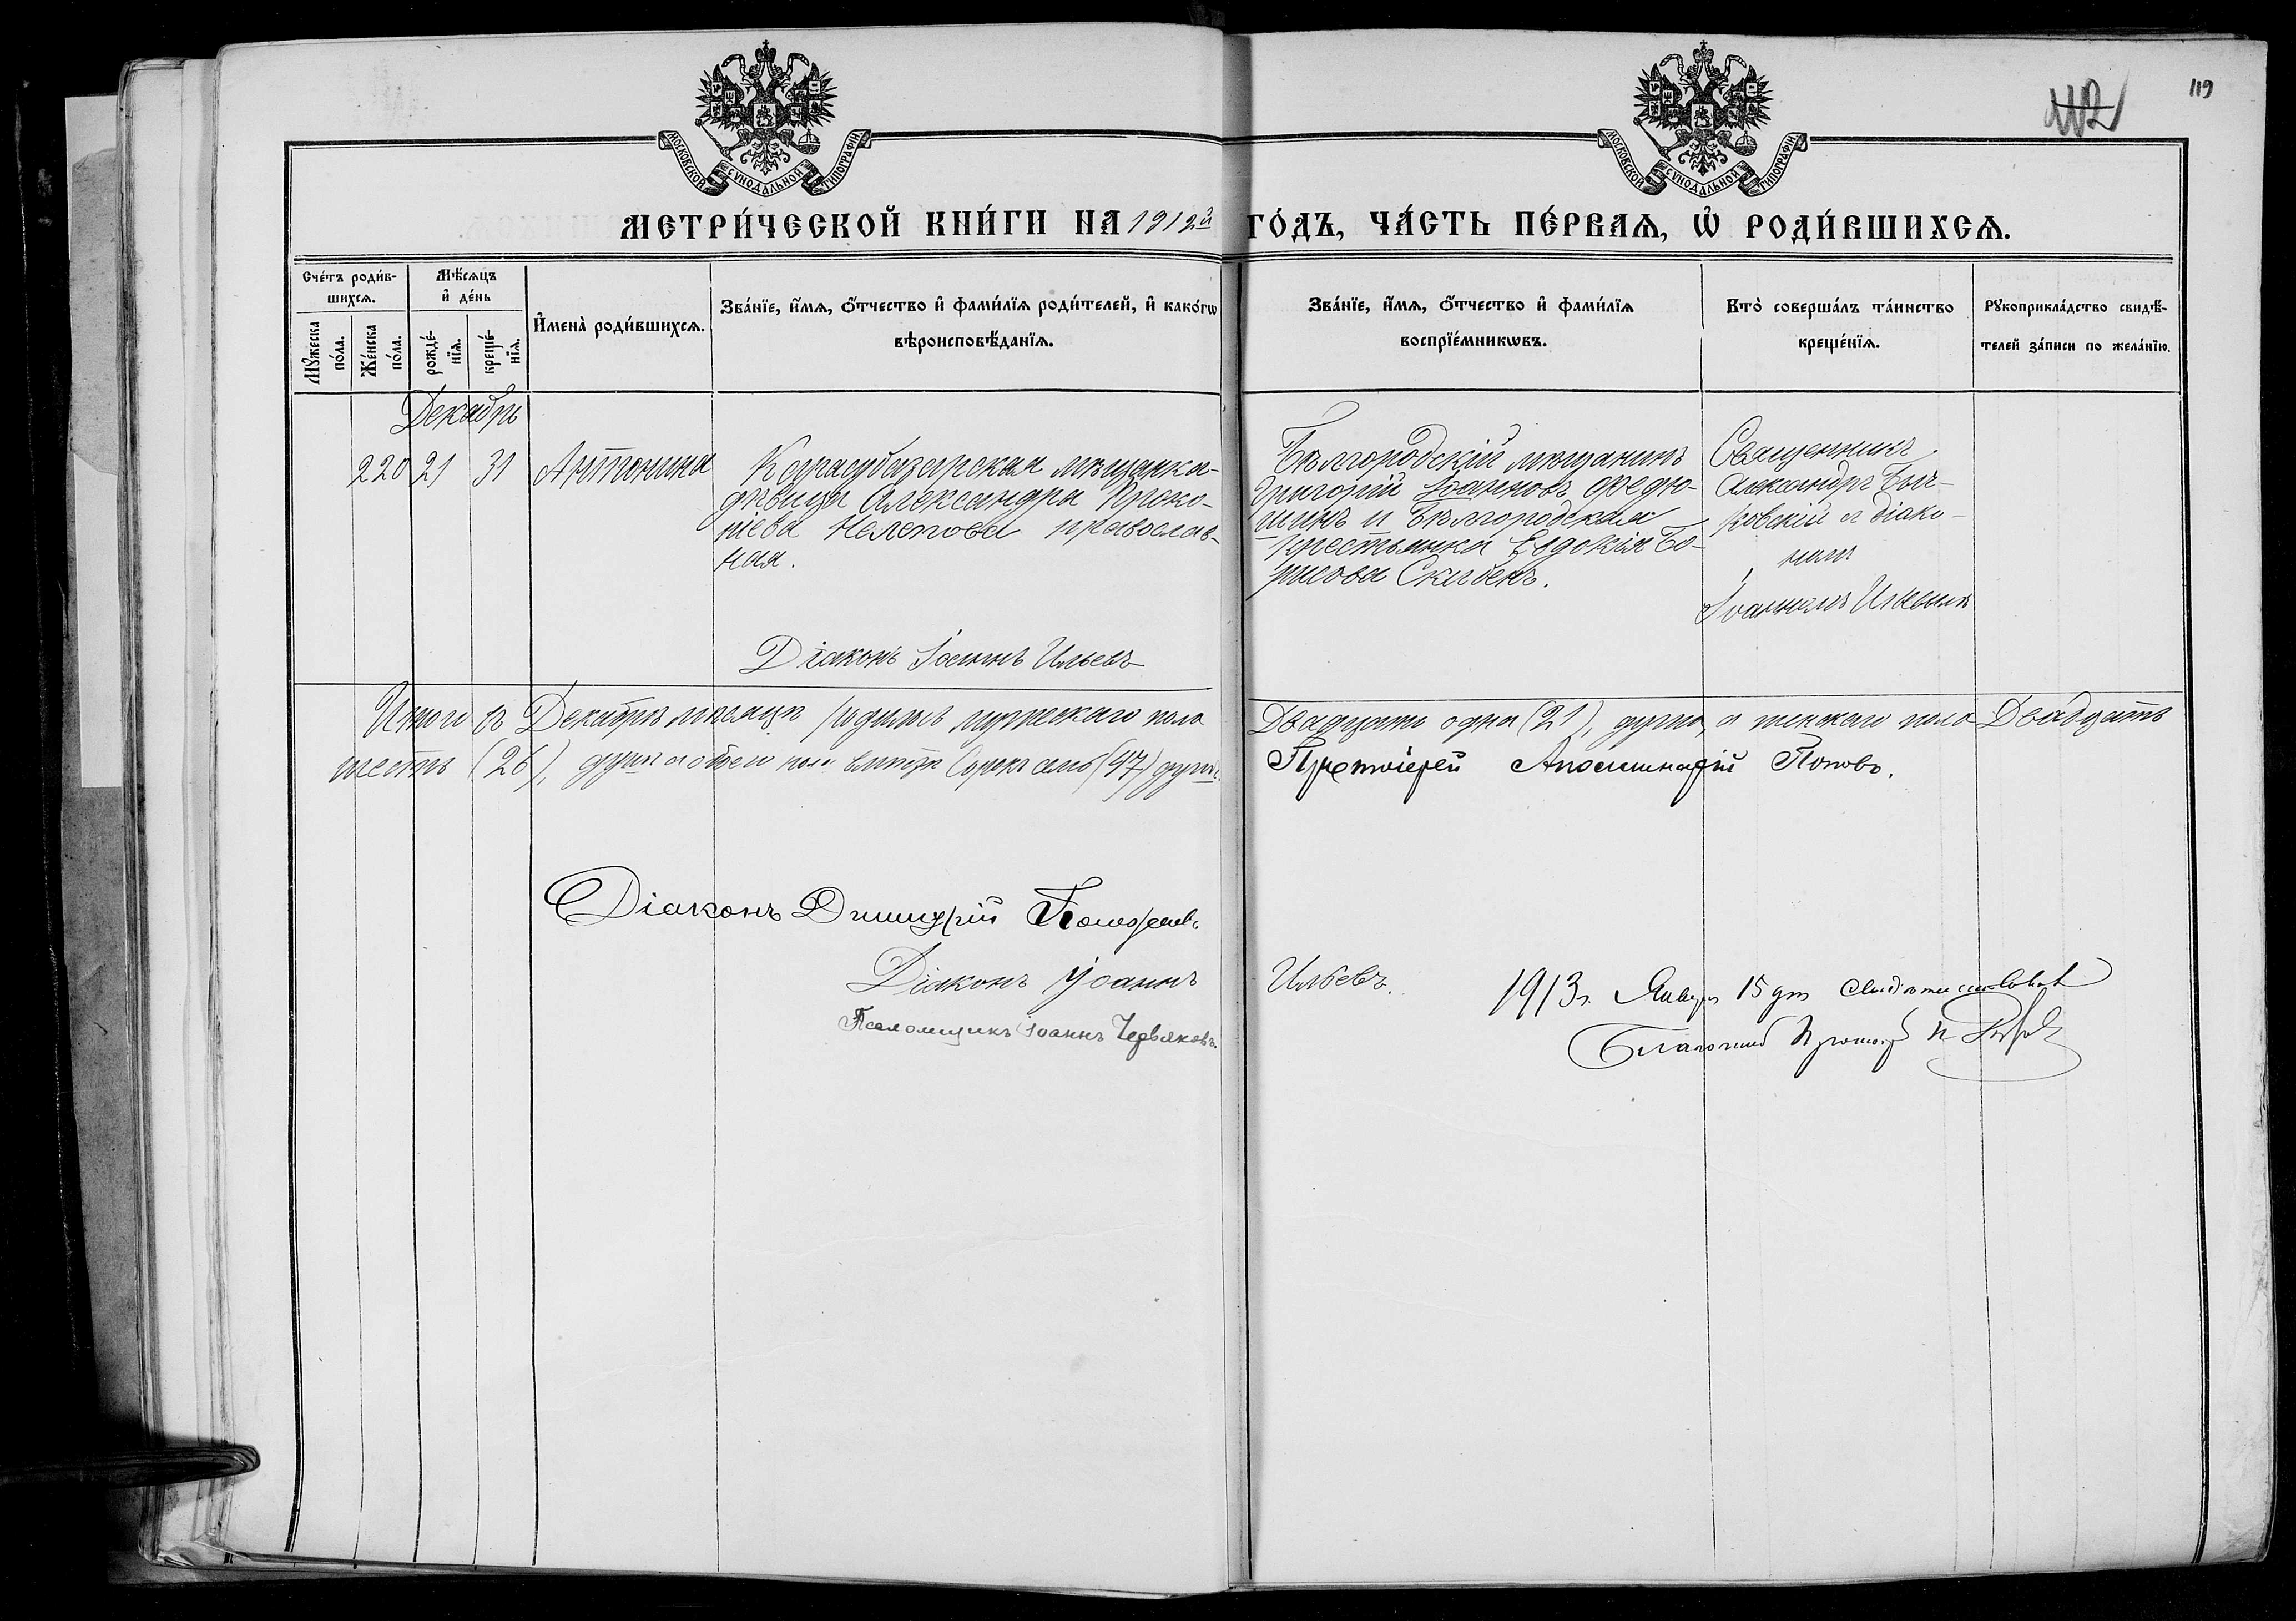 МОСКОВСКОЙ СѴНОДАЛЬНОЙ ТИПОГРАФІИ
МОСКОВСКОЙ СѴНОДАЛЬНОЙ ТИПОГРАФІИ
112
119
МЕТРИ́ЧЕСКОЙ КНИ́ГИ НА 1912й ГО́ДЪ, ЧА́СТЬ ПЕ́РВАѦ, Ѡ҆ РОДИ́ВШИХСѦ.
Сче́тъ роди́в-
шихсѧ.
Мꙋ́жеска
по́ла.
Же́нска
по́ла.
Мѣ́сѧцъ
и҆ де́нь
рожде́-
нїѧ.
креще́-
нїѧ.
И҆мена̀ роди́вшихсѧ.
Зва́нїе, и҆́мѧ, ѻ҆́тчество и҆ фами́лїѧ роди́телей, и҆ како́гѡ
вѣроисповѣ́данїѧ.
Зва́нїе, и҆́мѧ, ѻ҆́тчество и҆ фами́лїѧ
воспрїе́мникѡвъ.
Кто̀ соверша́лъ та́инство
креще́нїѧ.
Рꙋкоприкла́дство свидѣ́-
телей за́писи по жела́нїю.
Декабрь
220 21 31 Антонина
Карасубазарская мѣщанка-
дѣвица Александра Проко-
піева Налепова православ-
ная.
Діаконъ Іоаннъ Ильевъ
Бѣлгородскій мѣщанинъ
Григорій Іоанновъ Федю-
шинъ и Бѣлгородская
крестьянка Евдокія Бо-
рисова Скибенъ.
Священникъ
Александръ Быч-
ковскій съ діако-
номъ
Іоанномъ Ильевымъ
Итого въ Декабрѣ мѣсяцѣ родилось мужескаго пола Двадцать одна (21), душа, а женскаго пола Двадцать
шесть (26), душъ а обоего пола вмѣстѣ Сорокъ семь (47) душъ.
Протоіерей Аполлинарій Поповъ.
Діаконъ Димитрій
Діаконъ Іоаннъ Ильевъ.
Псаломщикъ Іоаннъ Червяковъ.
1913 г. Января 15 дня свидѣтельствовалъ
Благочинный Протоіерей Н.